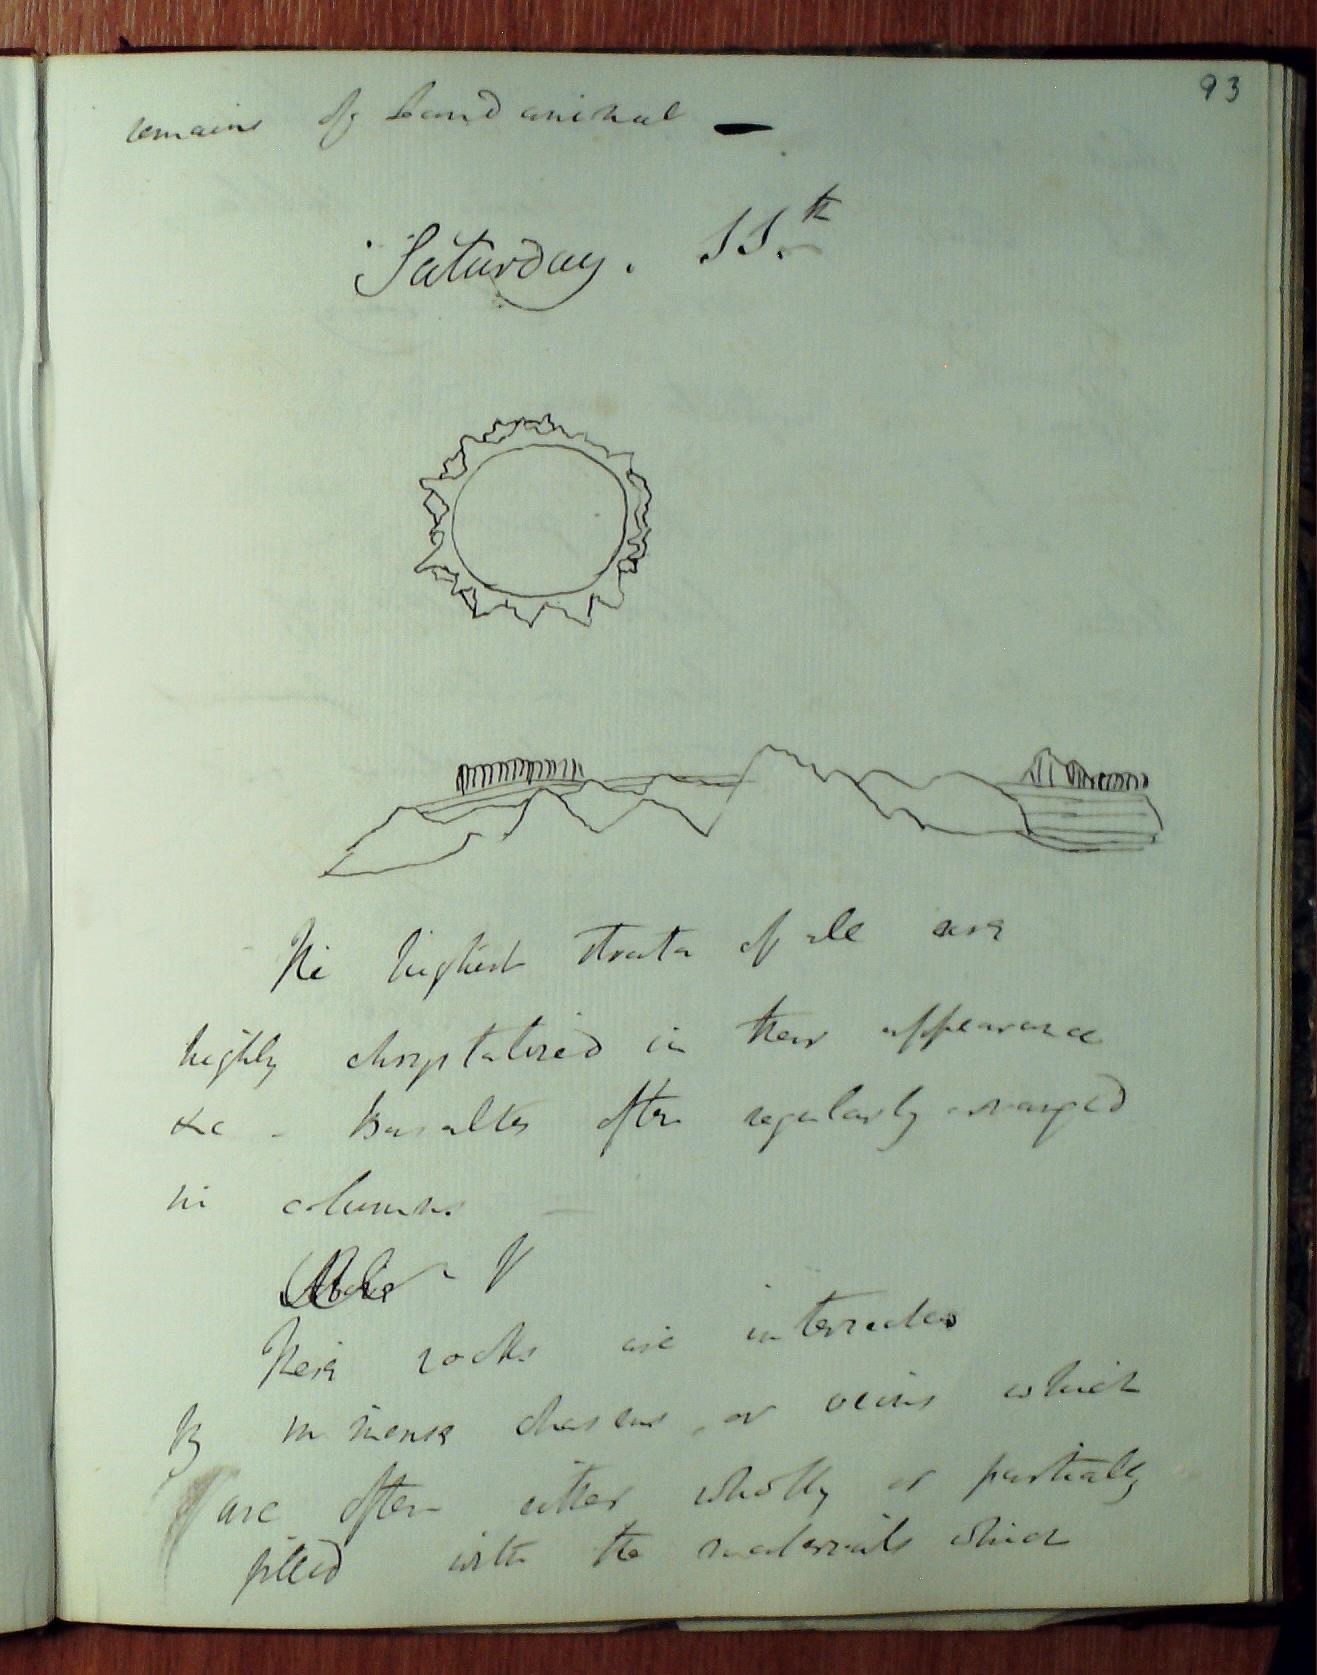 93
remains of Land animal —
Saturday. 11.th
The highest strata of all are
highly chrystalized in their appearance
&c - Basaltes often regularly arranged
in columns. —
These rocks are intersected
By immense chasms, or veins which
are often either wholly or partially
filled with the materials which